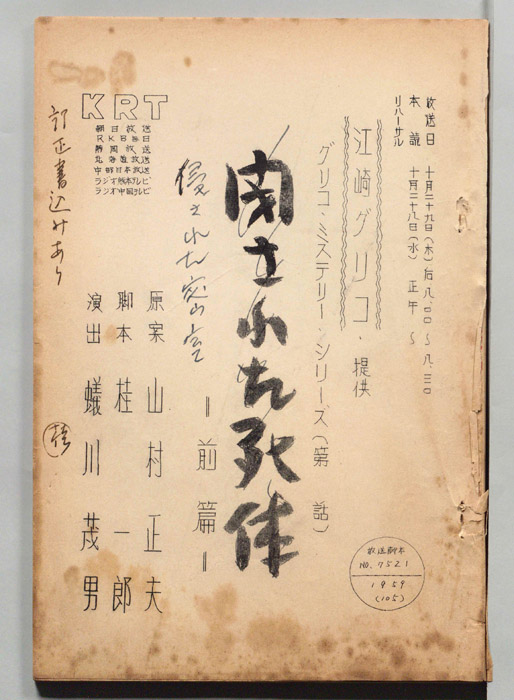 放送日 十月二十九日(木)后八.〇〇〜八.三〇
本読 十月二十八日(水)正午〜
リハーサル
江崎グリコ・提供
グリコ・ミステリー・シリーズ(第 話)
閉された死体
侵された密室
=前篇=
原案 山村正夫
脚本 桂一郎
演出 蟻川茂男
KRT
朝日放送
RKB毎日
静岡放送
北海道放送
中部日本放送
ラジオ熊本テレビ
ラジオ中国テレビ
訂正書込みあり
桂
放送脚本
NO.7521
1959
(105)